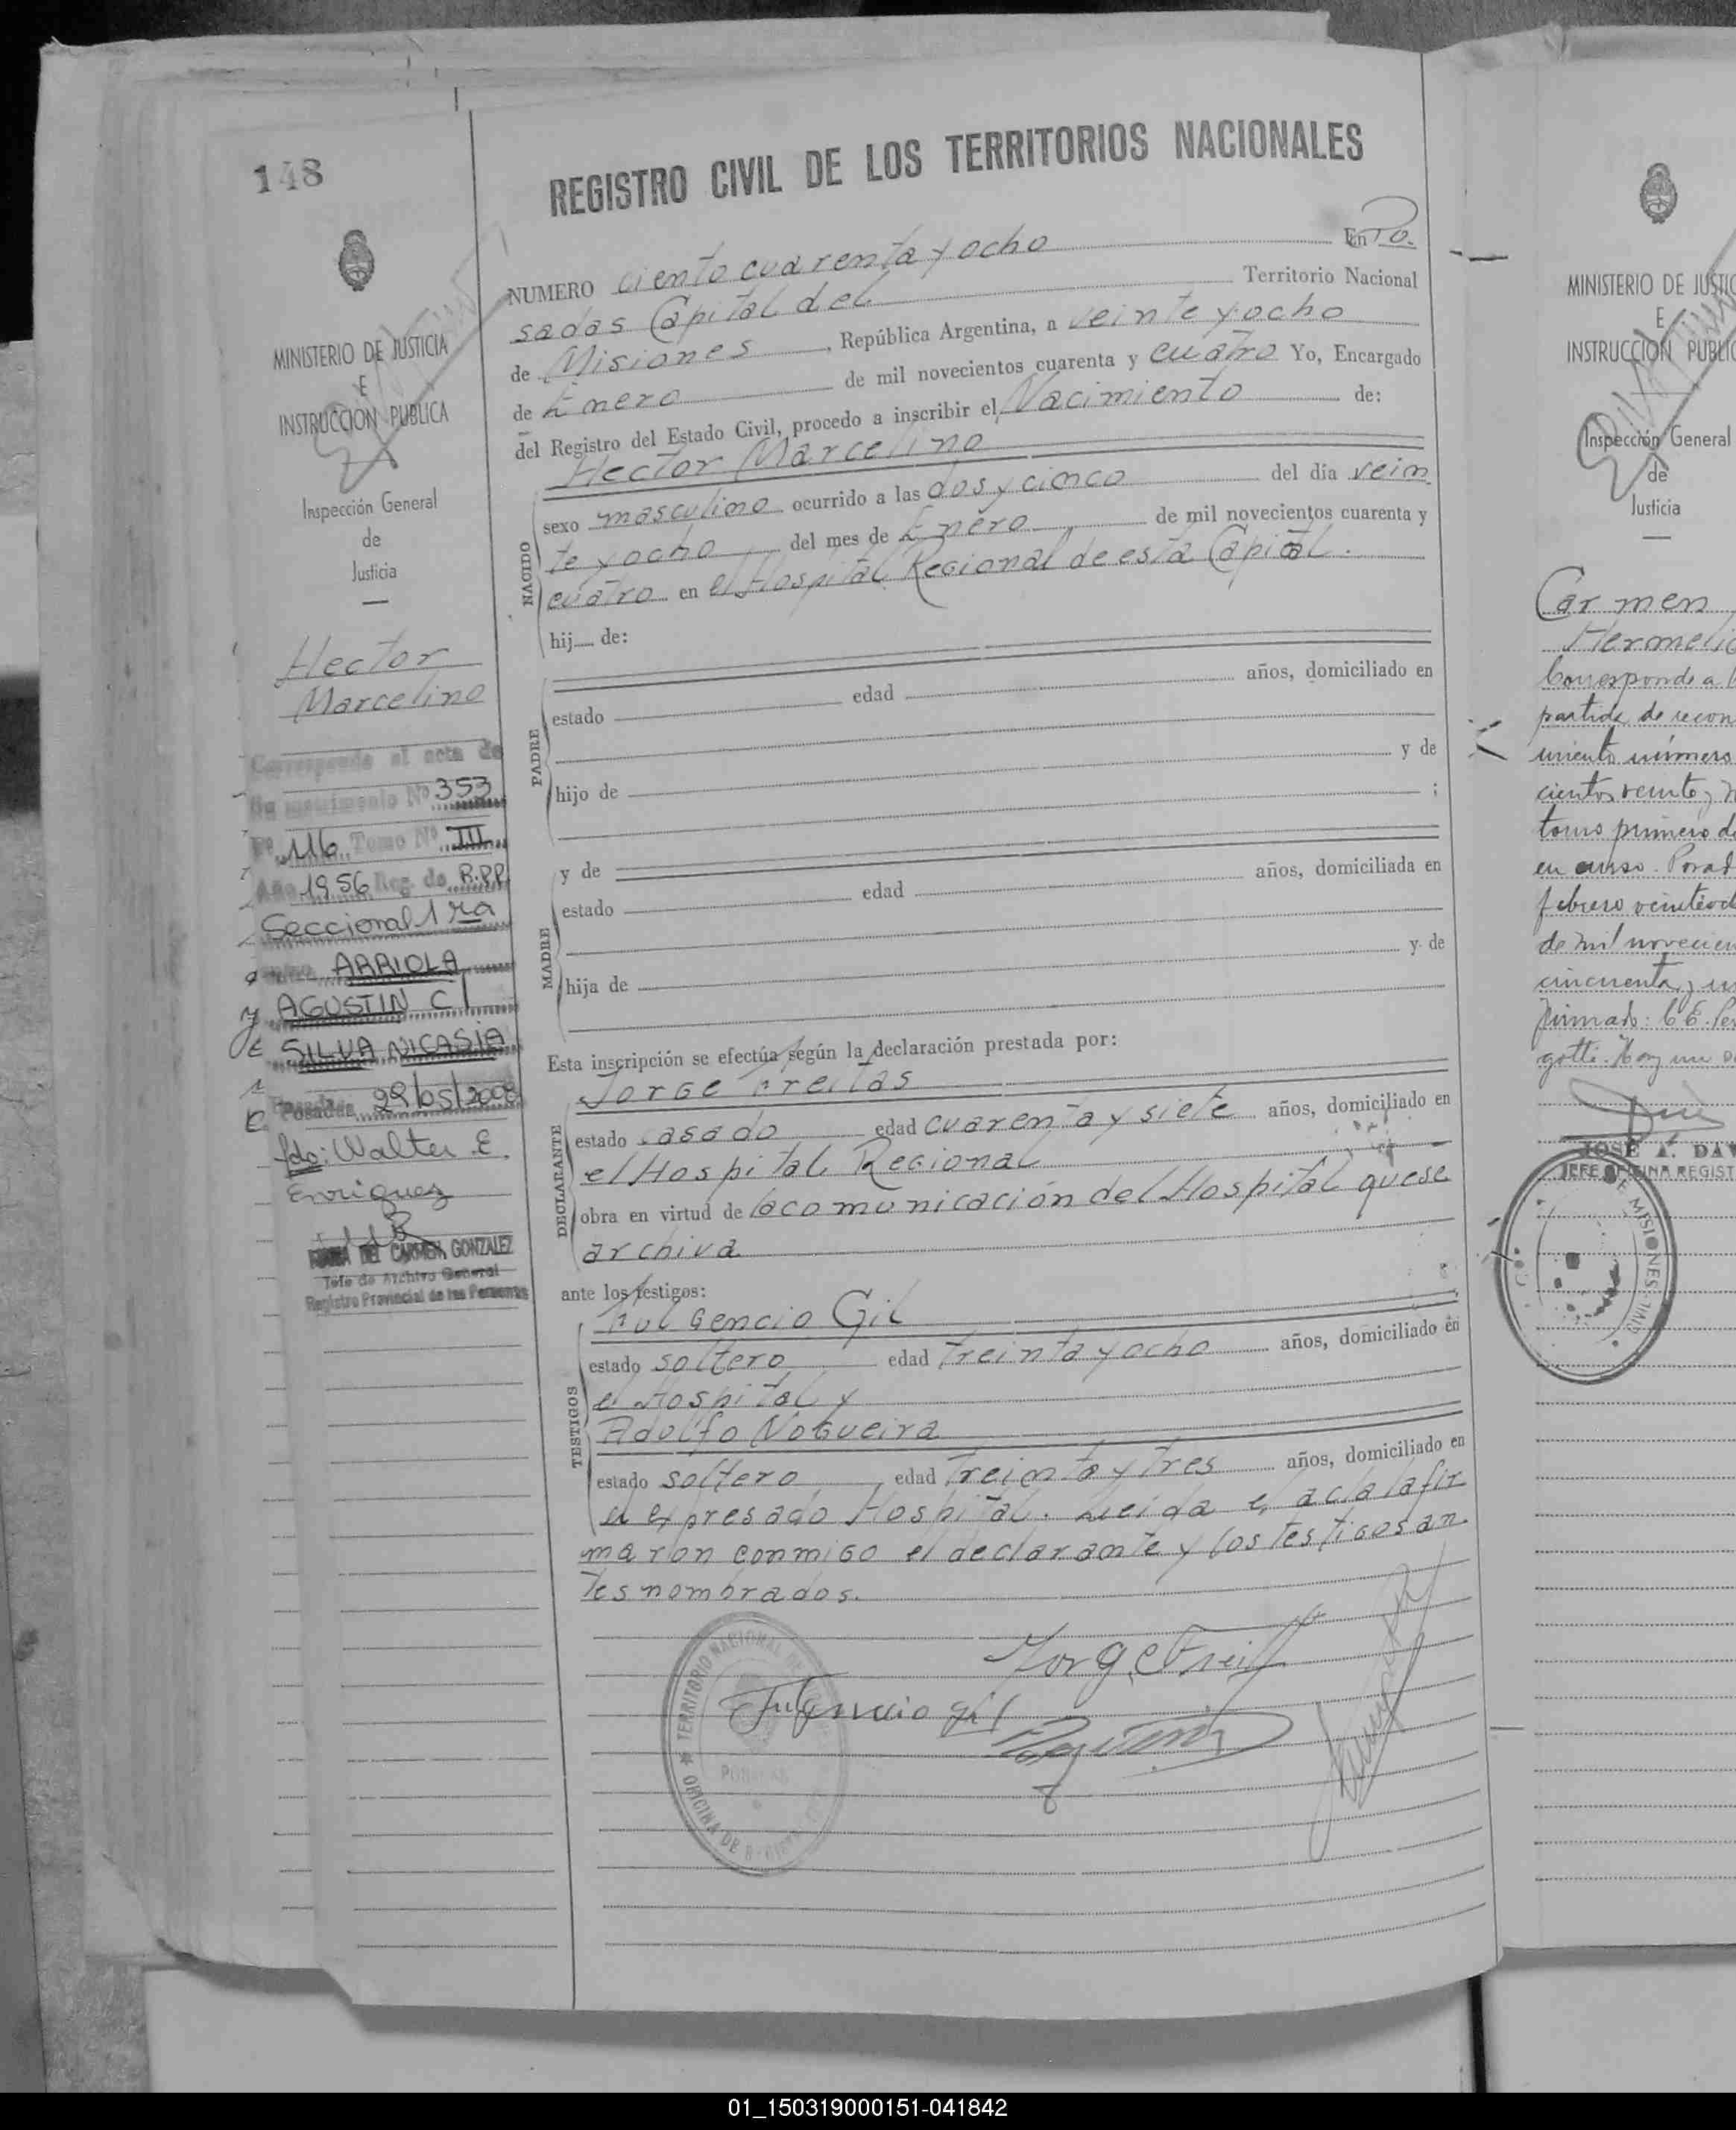 148
REGISTRO CIVIL DE LOS TERRITORIOS NACIONALES
MINISTERIO DE JUSTICIA
E
INSTRUCCION PUBLICA
Inspección General
de
Justicia
Hector
Marcelino
Corresponde al acta de
matrimonio Nº 353
Fº 116 Tomo Nº III
Año 1956 Reg. de R.P.P.
Seccional 1ra
ARRIOLA
AGUSTIN C
SILVA NICASIA
Posadas 29/05/2008
fdo: Walter E.
Enriquez
MARIA DEL CARMEN GONZALEZ
Jefe de Archivo General
Registro Provincial de las Personas
NUMERO ciento cuarenta y ocho En Po.
sadas Capital del Territorio Nacional
de Misiones, República Argentina, a veinte y ocho
de Enero de mil novecientos cuarenta y cuatro Yo, Encargado
del Registro del Estado Civil, procedo a inscribir el Nacimiento de:
NACIDO
Hector Marcelino
sexo masculino ocurrido a las dos y cinco del día vein
te y ocho del mes de Enero de mil novecientos cuarenta y
cuatro en el Hospital Regional de esta Capital.
hij de:
PADRE
estado edad años, domiciliado en
hijo de y de
;
MADRE
y de
estado edad años, domiciliada en
hija de y de
Esta inscripción se efectúa según la declaración prestada por:
DECLARANTE
Jorge Freitas
estado casado edad cuarenta y siete años, domiciliado en
el Hospital Regional
obra en virtud de la comunicación del Hospital que se
archiva
ante los testigos:
TESTIGOS
Fulgencio Gil
estado soltero edad treinta y ocho años, domiciliado en
el Hospital y
Adolfo Nogueira
estado soltero edad treinta y tres años, domiciliado en
el expresado Hospital. Leida el acta la fir
maron conmigo el declarante y los testigos an
tes nombrados.
Jorge Freit
Fulgencio gil
TERRITORIO NACIONAL DE
POSADAS
OFICINA DE
MINISTERIO DE JUSTIC
E
INSTRUCCION PUBLIC
Inspección General
de
Justicia
Carmen
Hermeli
Corresponde a l
partida de recon
miento número
ciento veinte y n
tomo primero d
en curso. Posad
febrero veintioch
de mil novecien
cincuenta y un
Firmado: C. E. Per
gotti. Hay un
JOSE A. DAV
JEFE OFICINA REGIST
MISIONES
CIVIL
01_150319000151-041842